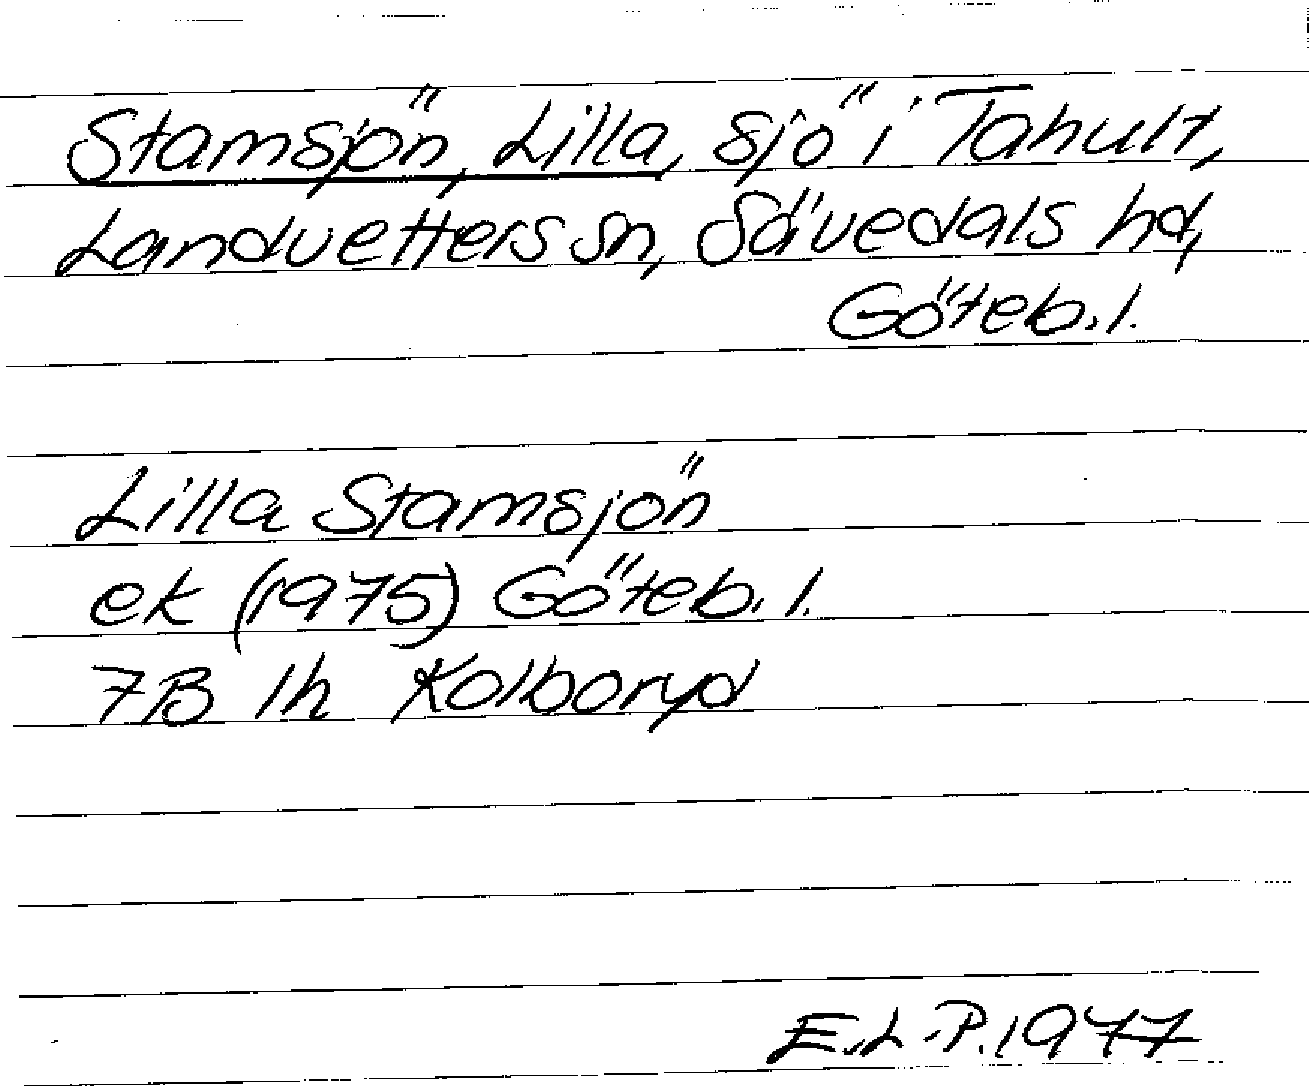 Stamsjön, Lilla, sjö i Tahult,
Landvetters sn, Sävedals hd,
Göteb. l.
Lilla Stamsjön
ek (1975) Göteb. l.
7B 1h Kolboryd
E.L.P. 1977